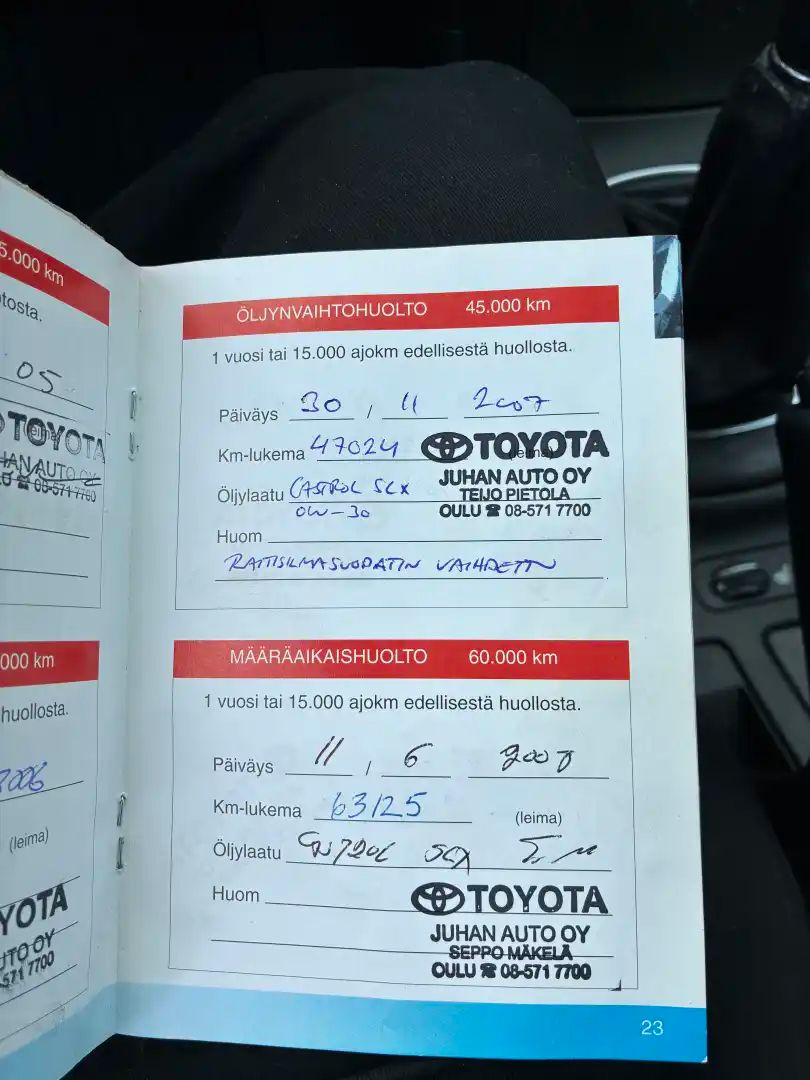 5.000 km
tosta.
05
TOYOTA
HAN AUTO OY
08-571 7700
000 km
huollosta.
2006
(leima)
YOTA
UTO OY
571 7700
ÖLJYNVAIHTOHUOLTO 45.000 km
1 vuosi tai 15.000 ajokm edellisestä huollosta.
Päiväys 30 / 11 2007
Km-lukema 47024 (leima)
TOYOTA
JUHAN AUTO OY
TEIJO PIETOLA
OULU ☎ 08-571 7700
Öljylaatu CASTROL SLX
0W-30
Huom
RAITISILMASUODATIN VAIHDETTU
MÄÄRÄAIKAISHUOLTO 60.000 km
1 vuosi tai 15.000 ajokm edellisestä huollosta.
Päiväys 11 / 6 2008
Km-lukema 63125 (leima)
Öljylaatu CASTROL SLX
Huom
TOYOTA
JUHAN AUTO OY
SEPPO MÄKELÄ
OULU ☎ 08-571 7700
23